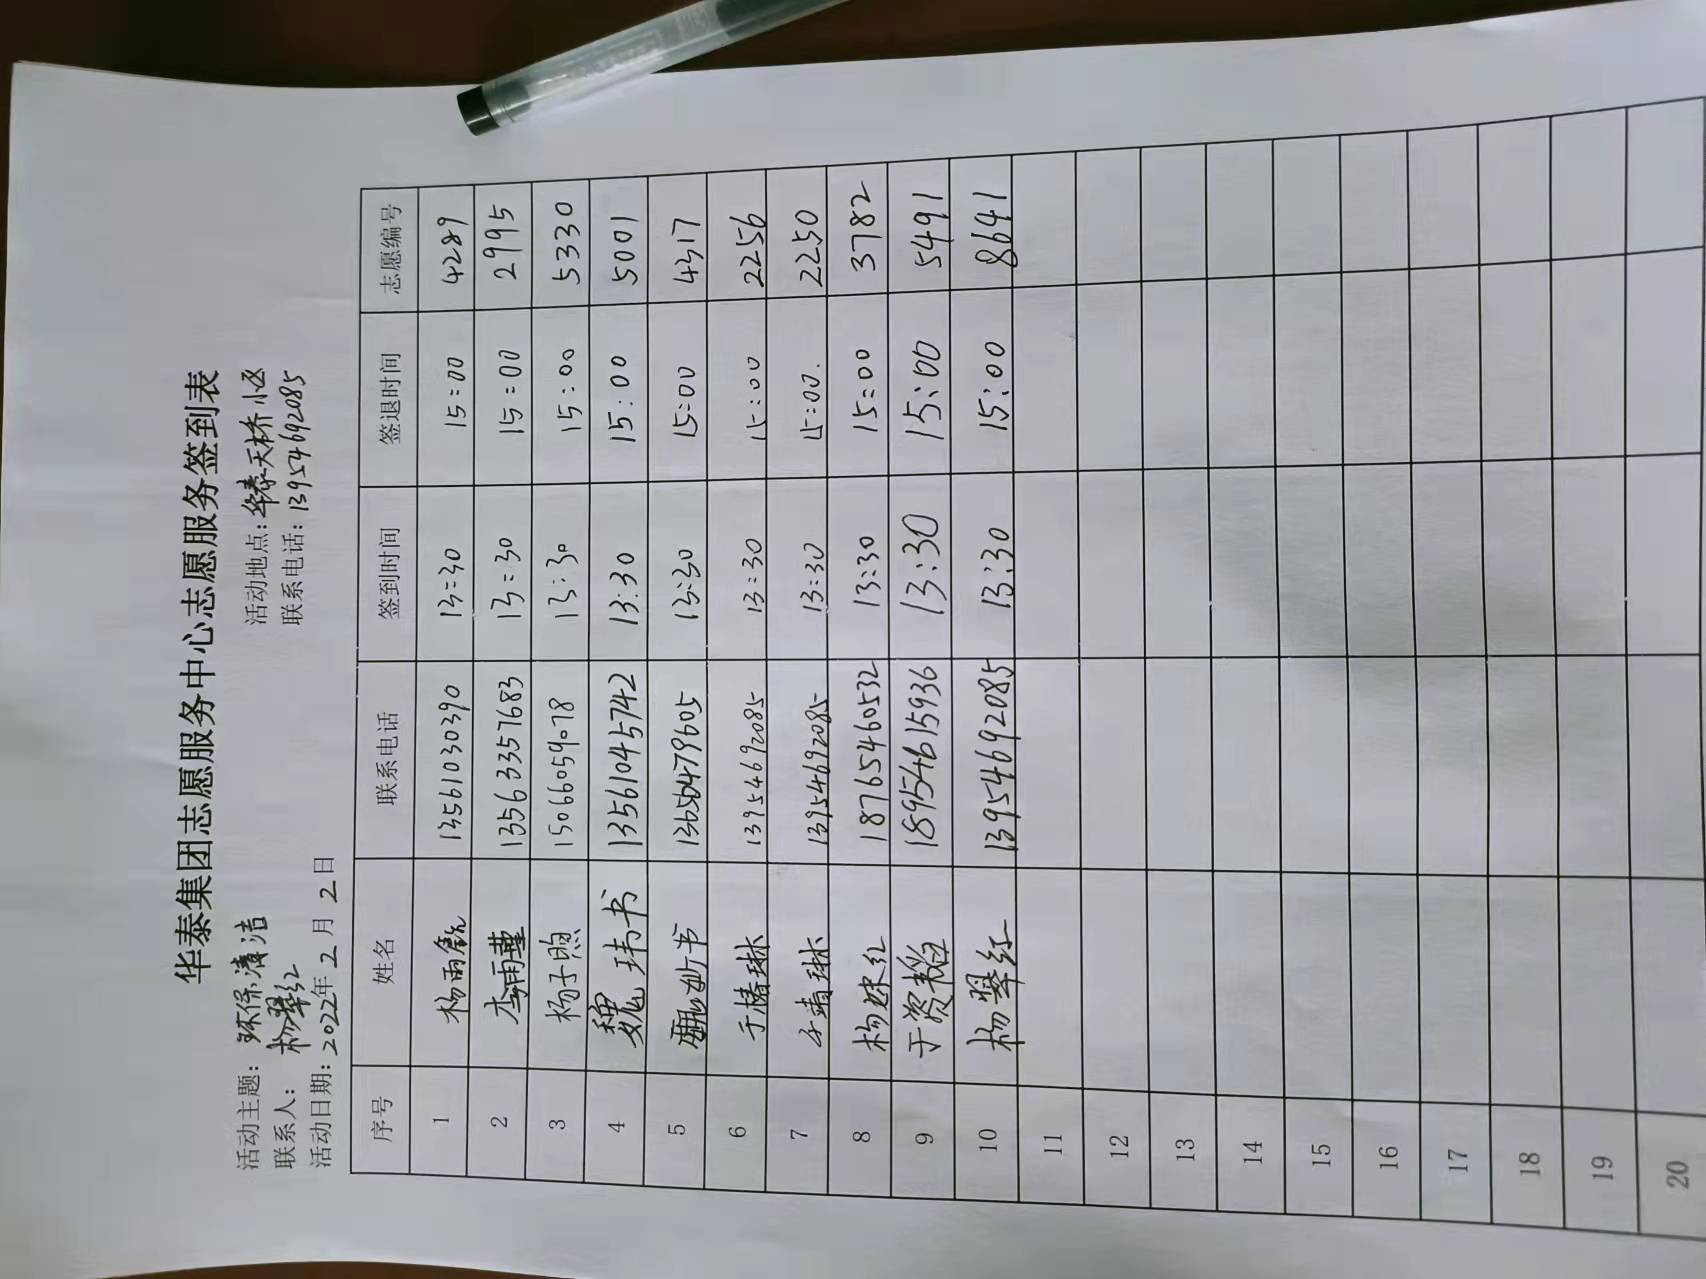 华泰集团志愿服务中心志愿服务签到表
活动主题：环保清洁 活动地点：华泰天桥小区
联系人：杨翠红 联系电话：13954692085
活动日期：2022年2月2日
序号 姓名 联系电话 签到时间 签退时间 志愿编号
1 杨雨 13561030390 13:30 15:00 4289
2 李雨蕫 13563357683 13:30 15:00 2995
3 杨子煦 15066059078 13:30 15:00 5330
4 魏玮书 13561045742 13:30 15:00 5001
5 魏妙书 13:30 15:00 4317
6 于椿琳 13954692085 13:30 15:00 2256
7 于靖琳 13954692085 13:30 15:00. 2250
8 杨姝红 18765460532 13:30 15:00 3782
9 于资韬 18954615936 13:30 15:00 5491
10 杨翠红 13954692085 13:30 15:00 8641
11
12
13
14
15
16
17
18
19
20